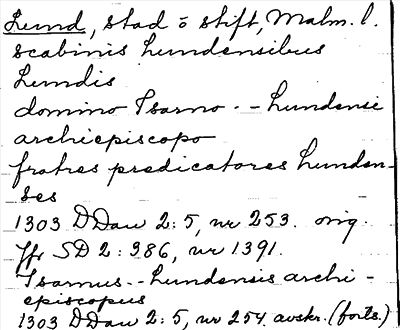 Lund, stad o stift, Malm. l.
scabinis Lundensibus
Lundis
domino Isarno -- Lundensi
archiepiscopo
fratres predicatores Lunden-
ses
1303 DDan 2:5, nr 253. orig.
Jfr SD 2:386, nr 1391.
Isarnus -- Lundensis archi-
episcopus
1303 DDan 2:5, nr 254 avskr. (forts.)